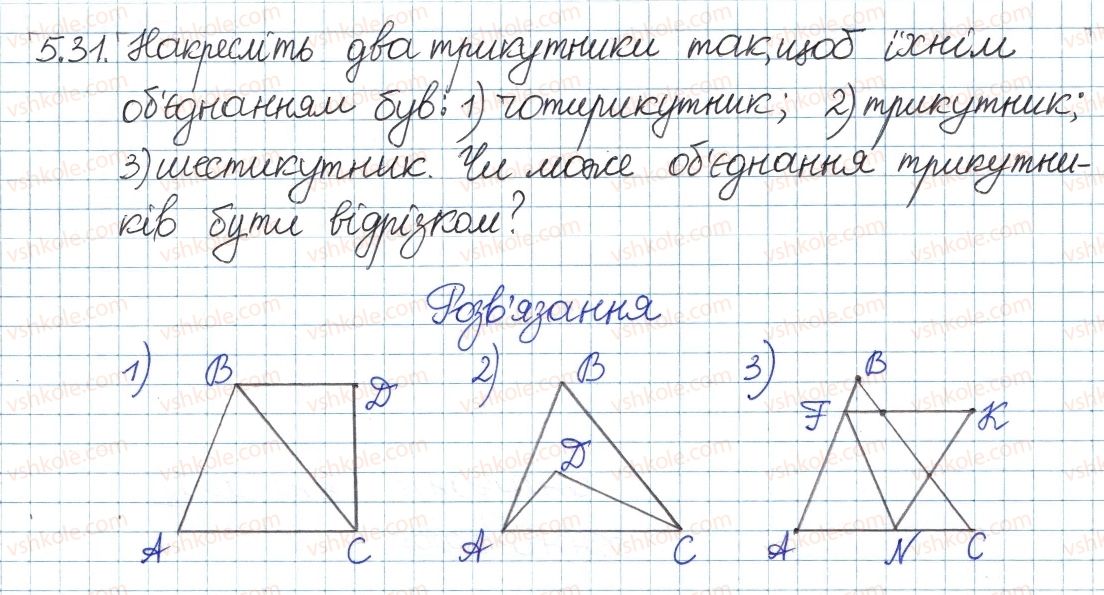 5.31. Накресліть два трикутники так, щоб їхнім
об'єднанням був: 1) чотирикутник; 2) трикутник;
3) шестикутник. Чи може об'єднання трикутни-
ків бути відрізком?
Розв'язання
1) B D A C
2) B D A C
3) B F K A N C
vshkole.com